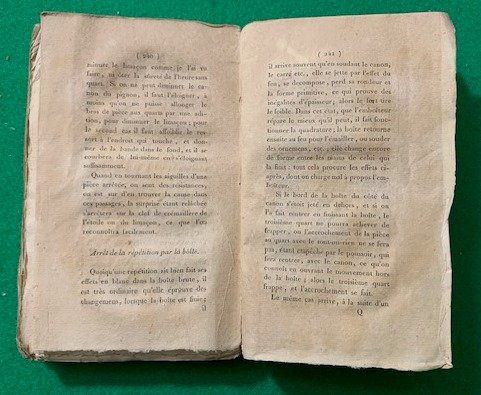 ( 240 )
minuer le limaçon comme je l'ai vu
faire, ni ôter la sûreté de l'heure sans
quart. Si on ne peut diminuer le ca-
non du pignon, il faut l'éloigner, à
moins qu'on ne puisse allonger le
bras de pièce aux quarts par une adi-
tion, pour diminuer le limaçon; pour
le second cas il faut affoiblir le res-
sort à l'endroit qui touche, et don-
ner de la bande dans le fond, et il se
courbera de lui-même en s'éloignant
suffisamment.
Quand en tournant les aiguilles d'une
pièce arrêtée, on sent des résistances,
on est sur d'en trouver la cause dans
ces passages, la surprise étant relâchée
s'arrêtera sur la clef de crémaillère de
l'étoile ou du limaçon, ce que l'on
reconnoîtra facilement.
Arrêt de la répétition par la boîte.
Quoiqu'une répétition ait bien fait ses
effets en blanc dans la boîte brute, il
est très ordinaire qu'elle éprouve des
changemens, lorsque la boîte est finie;
il
( 241 )
il arrive souvent qu'en soudant le canon,
le carré etc., elle se jette par l'effet du
feu, se décompose, perd sa rondeur et
la forme primitive, ce qui prouve des
inégalités d'épaisseur, alors le fort tire
le foible. Dans cet état, que l'emboîteur
répare le mieux qu'il peut, il fait fonc-
tionner la quadrature; la boîte retourne
ensuite au feu pour l'émailler, ou souder
des ornemens, etc.; elle change encore
de forme entre les mains de celui qui
la finit: tout cela procure les effets ci-
après, dont on charge mal à propos l'em-
boîteur.
Si le bord de la boîte du côté du
canon s'étoit jeté en dehors, et si on
l'a fait rentrer en finissant la boîte, le
troisième quart ne pourra achever de
frapper, ou l'accrochement de la pièce
au quart avec le tout-ou-rien ne se fera
pas, étant empêché par le poussoir, qui
sera rentré, avec le canon, ce qu'on
connoît en ouvrant le mouvement hors
de la boîte; alors le troisième quart
frappe, et l'accrochement se fait.
Le même cas arrive, à la suite d'un
Q